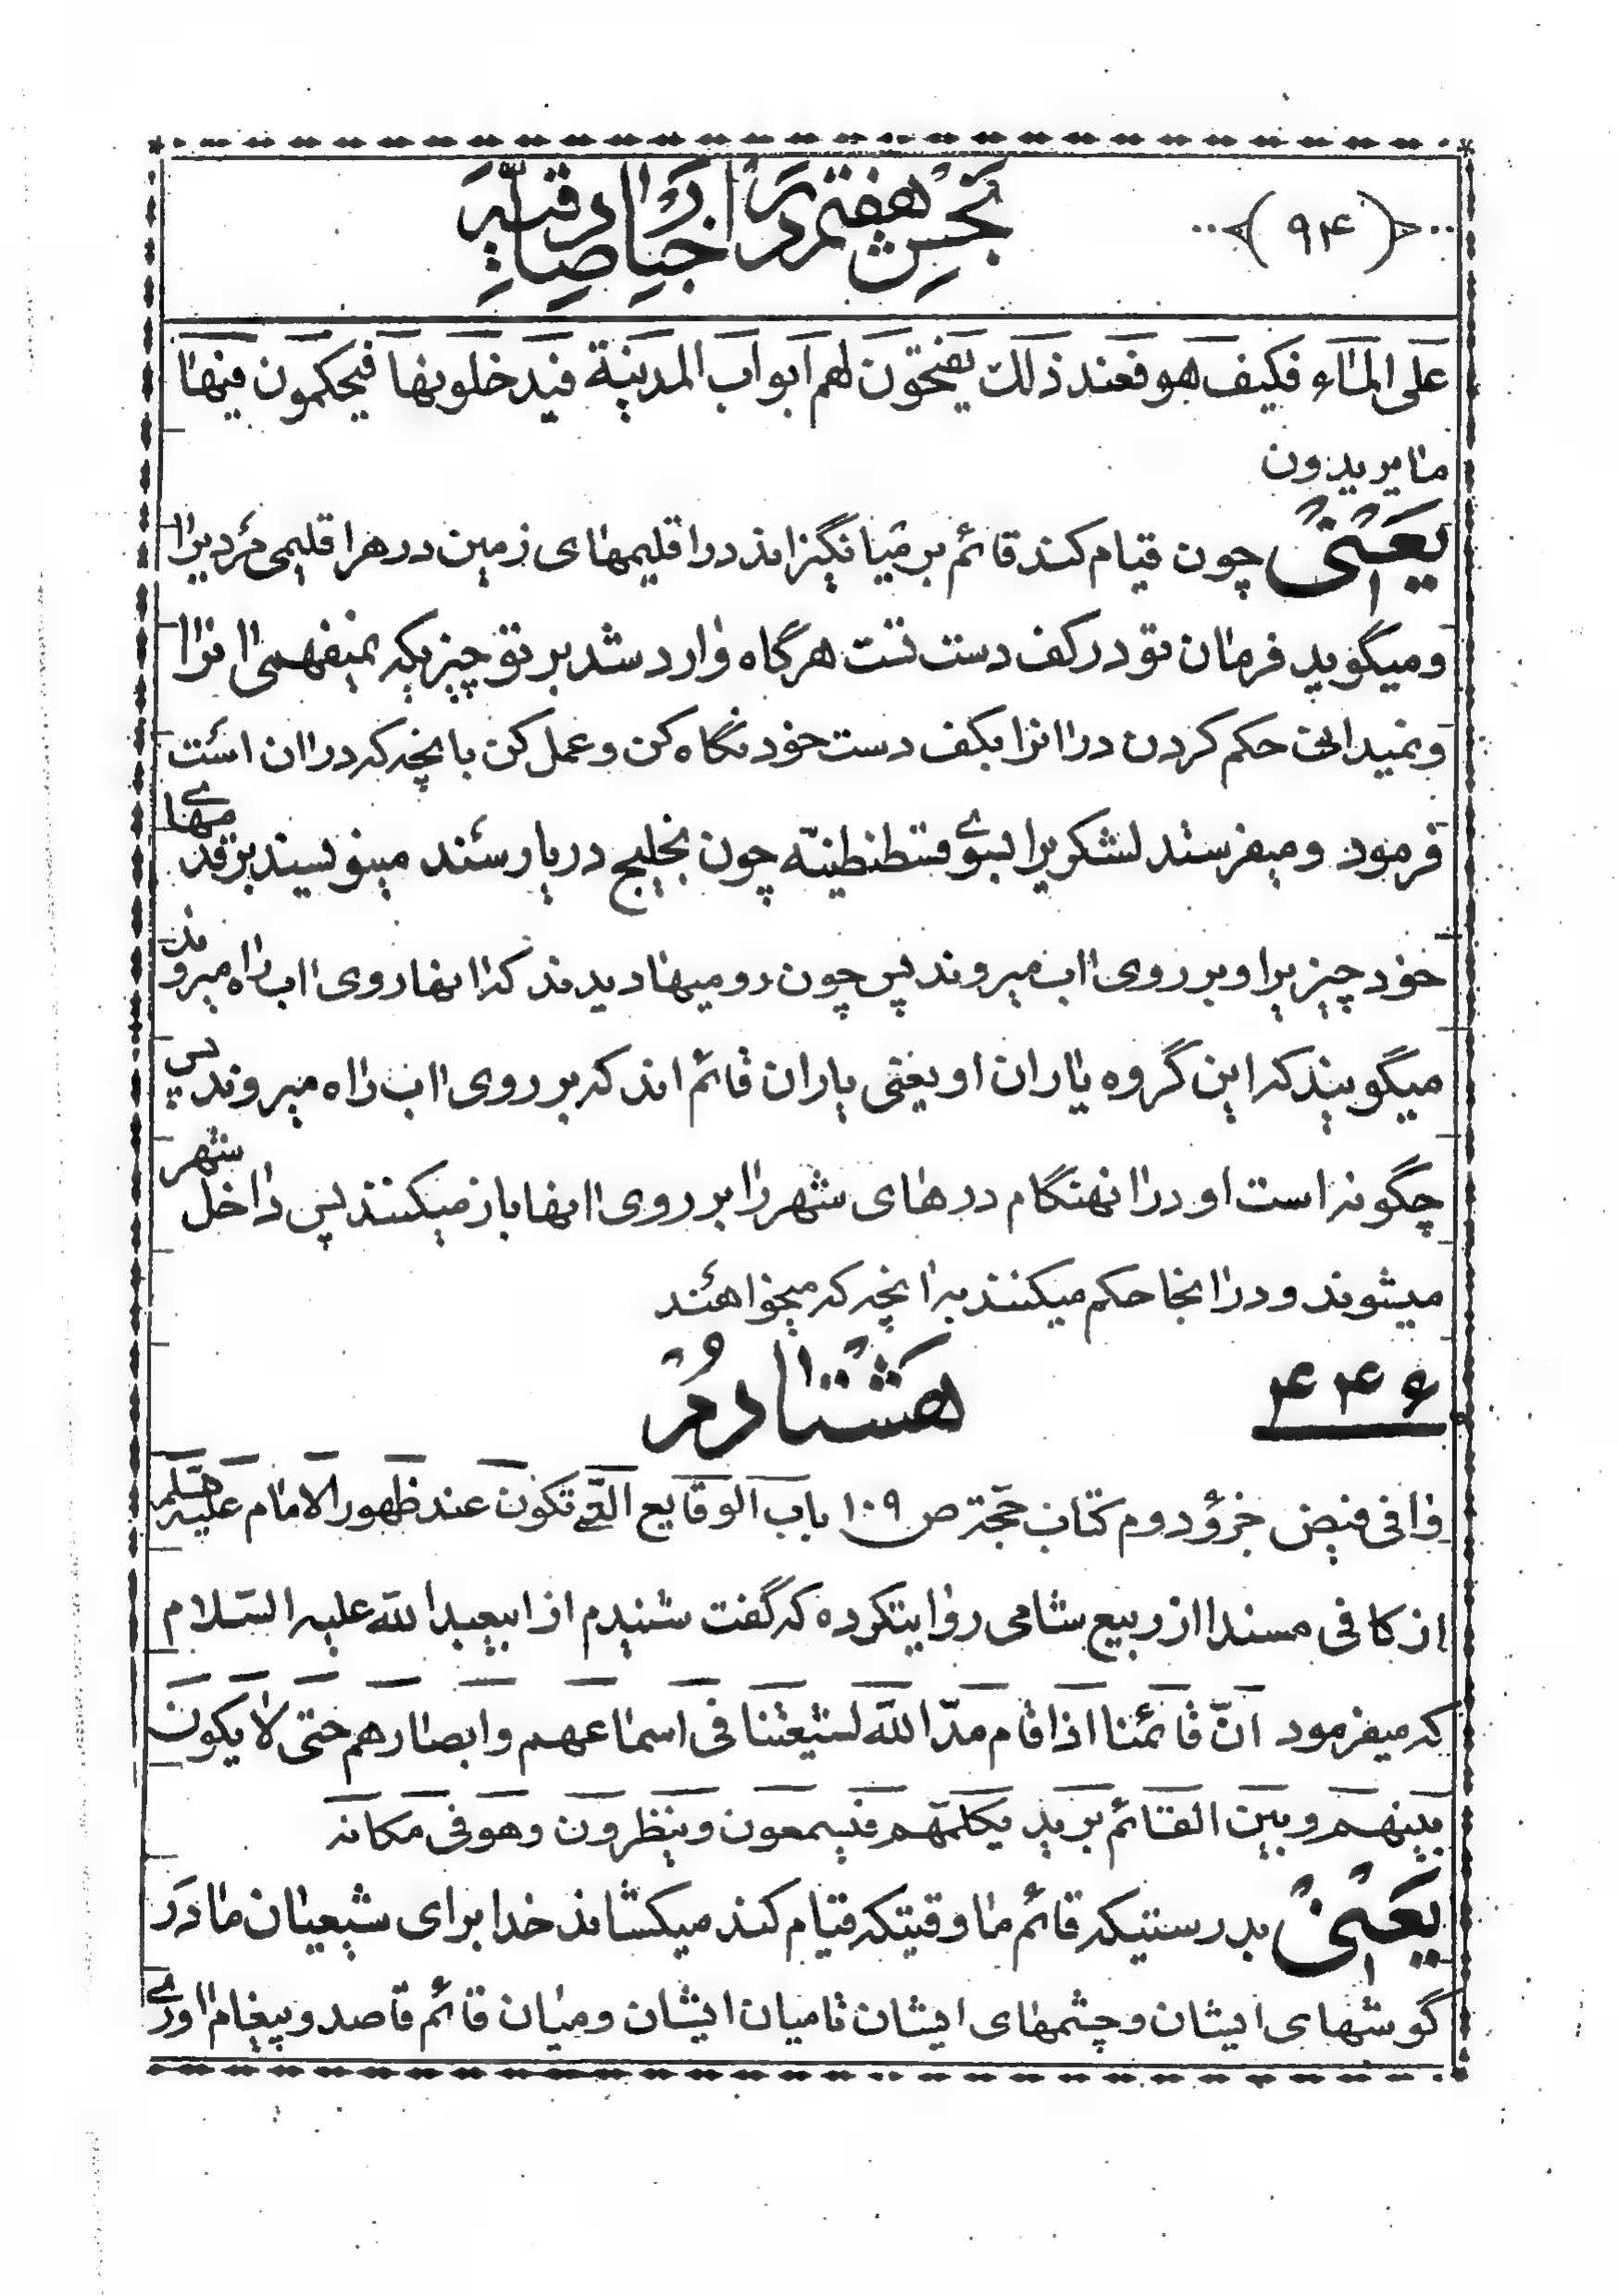 (۹۴)
بخش هفتم در اخبار صادقیه
علی الماء فکیف هو فعند ذلک یفتحون لهم ابواب المدینة فیدخلونها فیحکمون فیها
ما یریدون
یعنی چون قیام کند قائم برمیانگیزاند در اقلیمهای زمین در هر اقلیمی مردیرا
و میگوید فرمان تو در کف دست تست هرگاه وارد شد بر تو چیزیکه نمیفهمی انرا
و نمیدانی حکم کردن در انرا بکف دست خود نگاه کن و عمل کن بانچه که در ان است
فرمود و میفرستد لشکریرا بسوی قسطنطینیه چون بخلیج دریا رسند مینویسند بر قدمهای
خود چیزیرا و بر روی اب میروند پس چون رومیها دیدند که انها روی اب راه میروند
میگویند که این گروه یاران او یعنی یاران قائم اند که بر روی اب راه میروند پس
چگونه است او در انهنگام درهای شهر را بر روی انها باز میکنند پس داخل شهر
میشوند و در انجا حکم میکنند به انچه که میخواهند
۴۴۶
هشتادم
وافی فیض جزؤ دوم کتاب حجة ص ۱۰۹ باب الوقایع التی تکون عند ظهور الامام علیه السلم
از کافی مسندا از ربیع شامی روایتکرده که گفت شنیدم از ابیعبدالله علیه السلام
که میفرمود انّ قائمنا اذا قام مدّ الله لشیعتنا فی اسماعهم و ابصارهم حتی لا یکون
بینهم و بین القائم برید یکلمهم فیسمعون و ینظرون و هو فی مکانه
یعنی بدرستیکه قائم ما وقتیکه قیام کند میکشاند خدا برای شیعیان ما در
گوشهای ایشان و چشمهای ایشان تا میان ایشان و میان قائم قاصد و پیغام اوری